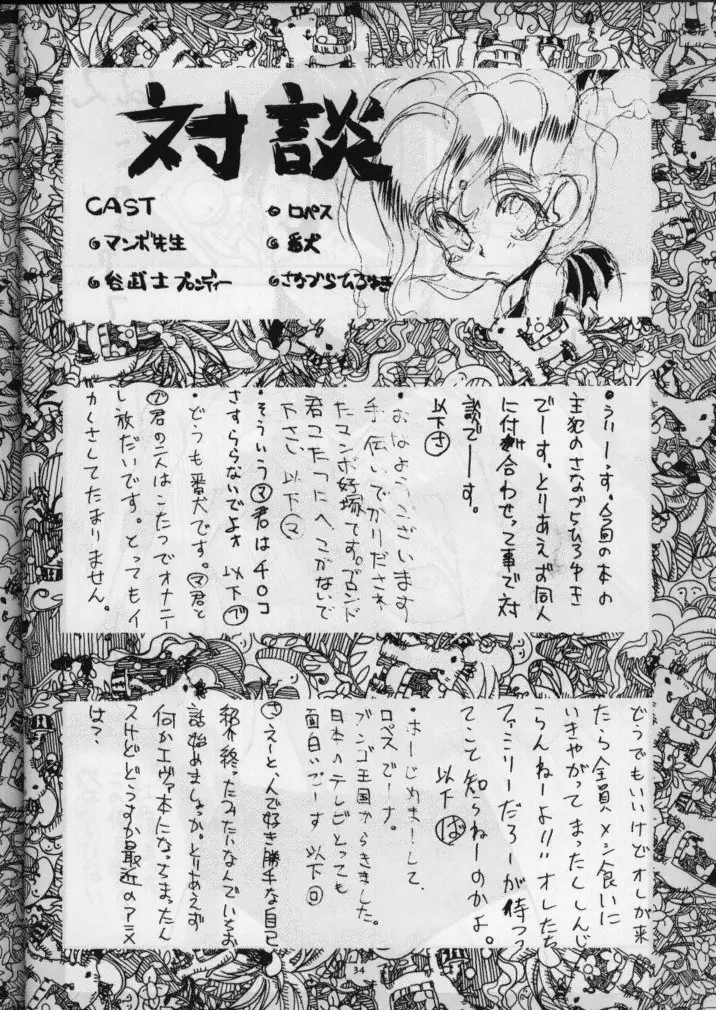 対談
CAST
マンボ先生
谷武士ブロンディー
ロペス
番犬
さなづらひろゆき
・ういーっす、今回の本の
主犯のさなづらひろゆき
でーす、とりあえず同人
に付き合わせって事で対
談でーす。
以下さ
・おはようございます
手伝いでかりだされ
たマンボ好塚です。ブロンド
君こたつにへこかないで
下さい 以下マ
・そういうマ君はチ○コ
さすらないでよォ 以下ブ
・どうも番犬です。マ君と
ブ君の二人はこたつでオナニー
し放だいです。とってもイ
カくさしてたまりません。
どうでもいいけどオレが来
たら全員メシ食いに
いきやがってまったくしんじ
らんねーよ!!オレたち
ファミリーだろーが待つっ
てこと知らねーのかよ。
以下ば
・はーじめまーして、
ロペスでーす。
ブンゴ王国からきました。
日本のテレビとっても
面白いでーす 以下ロ
さえーと、んで好き勝手な自己
紹介終ったみたいなんでいちお
話始めましょっか。とりあえず
何かエヴァ本になってまったん
スけどどうスか最近のアニメ
は?
34